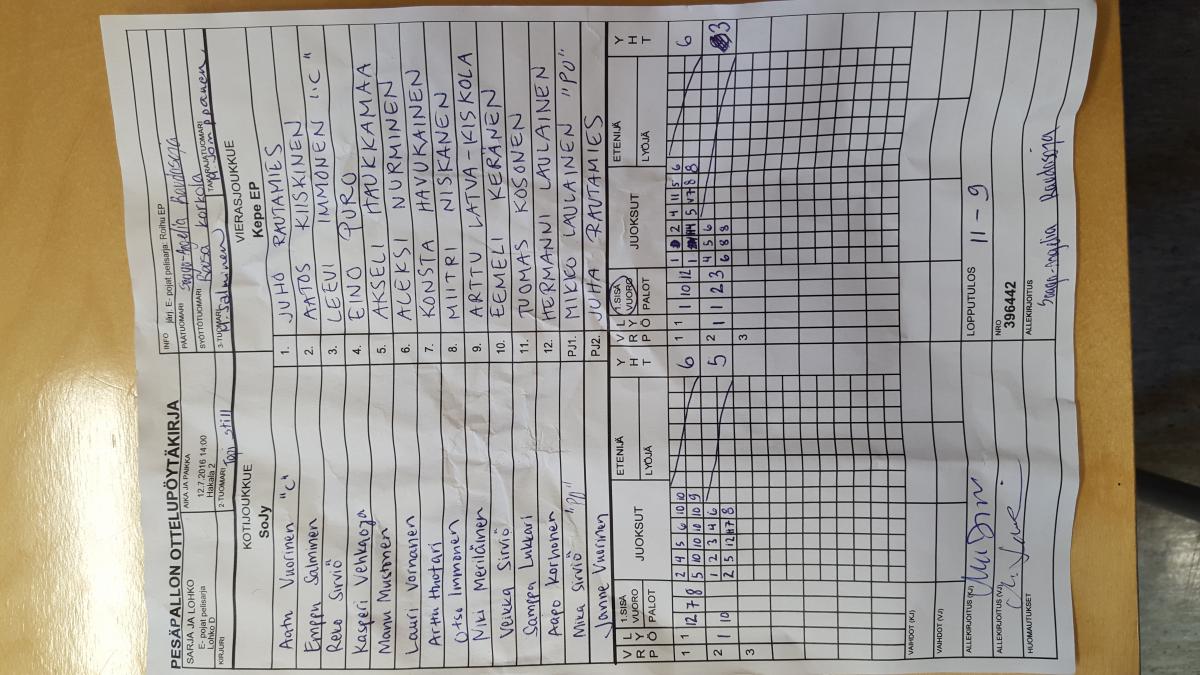 PESÄPALLON OTTELUPÖYTÄKIRJA
SARJA JA LOHKO
E- pojat pelisarja
Lohko D
AIKA JA PAIKKA
12.7.2016 14:00
Hakala 2
INFO järj. E- pojat pelisarja: Roihu EP
PÄÄTUOMARI
SYÖTTÖTUOMARI Rasa Korkola
KIRJURI
2-TUOMARI Topi Still
3-TUOMARI M. Salminen
TAKARAJATUOMARI
KOTIJOUKKUE
SoJy
VIERASJOUKKUE
Kepe EP
Aatu Vuorinen "C" 1. JUHO RAUTAMIES
Emppu Salminen 2. AATOS KIISKINEN
Reko Sirviö 3. LEEVI IMMONEN "C"
Kasperi Vehkaoja 4. EINO PURO
Manu Mustonen 5. AKSELI HAUKKAMAA
Lauri Vornanen 6. ALEKSI NURMINEN
Arttu Huotari 7. KONSTA HAVUKAINEN
Otso Immonen 8. MIITRI NISKANEN
Niki Meriläinen 9. ARTTU LATVA-KISKOLA
Veikka Sirviö 10. EEMELI KERÄNEN
Samppa Lukkari 11. TUOMAS KOSONEN
Aapo Korhonen 12. HERMANNI LAULAINEN
Mika Sirviö "PJ" PJ1. MIKKO LAULAINEN "PJ"
Janne Vuorinen PJ2. JUHA RAUTAMIES
V L
R Y
P Ö
1.SISÄ
VUORO
PALOT
JUOKSUT
ETENIJÄ
LYÖJÄ
Y
H
T
V L
R Y
P Ö
1.SISÄ
VUORO
PALOT
JUOKSUT
ETENIJÄ
LYÖJÄ
Y
H
T
1 1 12 7 8
2 4 5 6 10 10
5 10 10 10 10 9
6
1 1 1 10 12
6
2 1 10
1 2 3 4 6
5
2 1 1 2 3
4 5 6
6 8 8
3
3
3
VAIHDOT (KJ)
VAIHDOT (VJ)
ALLEKIRJOITUS (KJ)
LOPPUTULOS 11 - 9
ALLEKIRJOITUS (VJ)
NRO
396442
HUOMAUTUKSET
ALLEKIRJOITUS